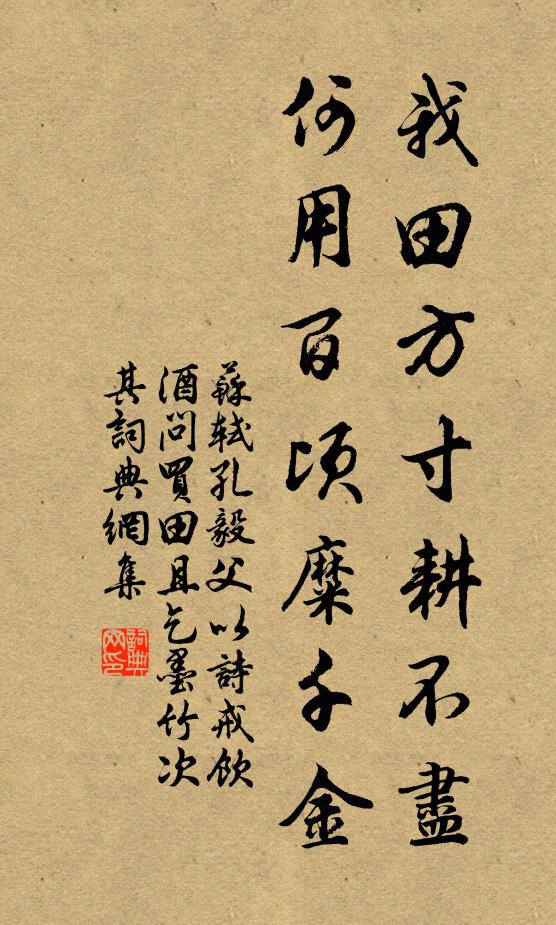 我田方寸耕不盡
何用百頃糜千金
蘇軾孔毅父以詩戒飲
酒問買田且乞墨竹次
其詞典網集
詞典网印